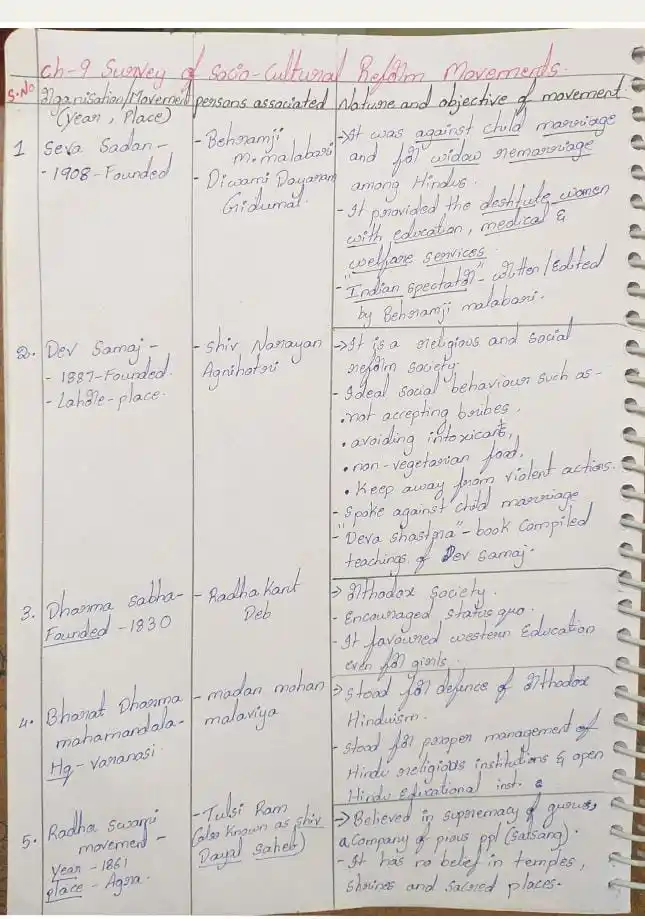 Ch-9 Survey of Socio-Cultural Reform Movements.
S.No
Organisation/Movement
(year, Place)
persons associated
Nature and objective of movement
1
Seva Sadan -
- 1908 - Founded
- Behramji
M. malabari
- Diwami Dayaram
Gidumal.
→ It was against child marriage
and for widow remarriage
among Hindus.
- It provided the destitute women
with education, medical &
welfare services.
- "Indian spectator" - written / Edited
by Behramji malabari.
2. Dev Samaj -
- 1887 - Founded.
- Lahore - place.
- Shiv Narayan
Agnihotri
→ It is a religious and social
reform society.
- Ideal social behaviour such as -
• not accepting bribes,
• avoiding intoxicant,
• non-vegetarian food,
• Keep away from violent actions.
- Spoke against child marriage
- "Deva Shastra" - book Compiled
teachings of Dev Samaj.
3. Dharma Sabha -
Founded - 1830
- Radha Kant
Deb
→ Orthodox Society.
- Encouraged status quo.
- It favoured western Education
even for girls.
4. Bharat Dharma
mahamandala -
Hq - Varanasi.
- madan mohan
malaviya
→ Stood for defence of Orthodox
Hinduism.
- Stood for proper management of
Hindu religious institutions & open
Hindu Educational inst.
5. Radha Swami
movement -
Year - 1861
place - Agra.
- Tulsi Ram
(also known as Shiv
Dayal Saheb)
→ Believed in supremacy of gurus,
a Company of pious ppl (satsang).
- It has no belief in temples,
Shrines and sacred places.